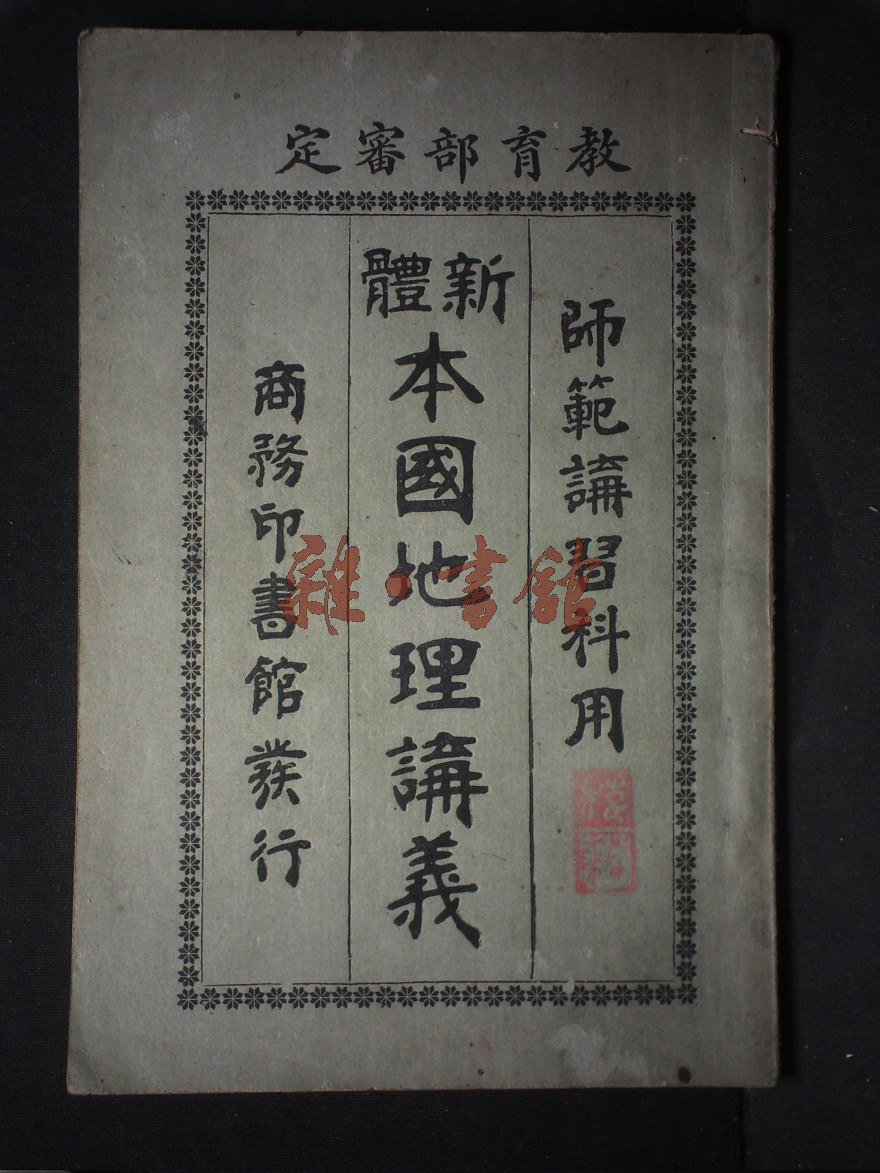 教育部審定
師範講習科用
新體
本國地理講義
商務印書館發行
雜·書館